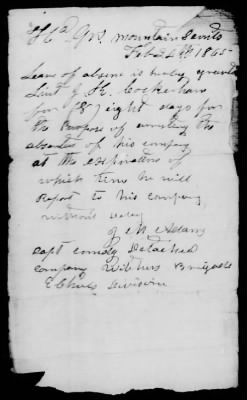 Hd Qrs Mountain Scouts
Feb 24th 1865
Leave of absence is hereby granted
Lieut J. H. Cockerham
for (8) eight days for
the Purpose of arresting the
absentees of his company
at the expiration of
which time he will
Report to his company
without delay
J M Adams
Capt comdg Detached
company Withers Brigade
Echols Division